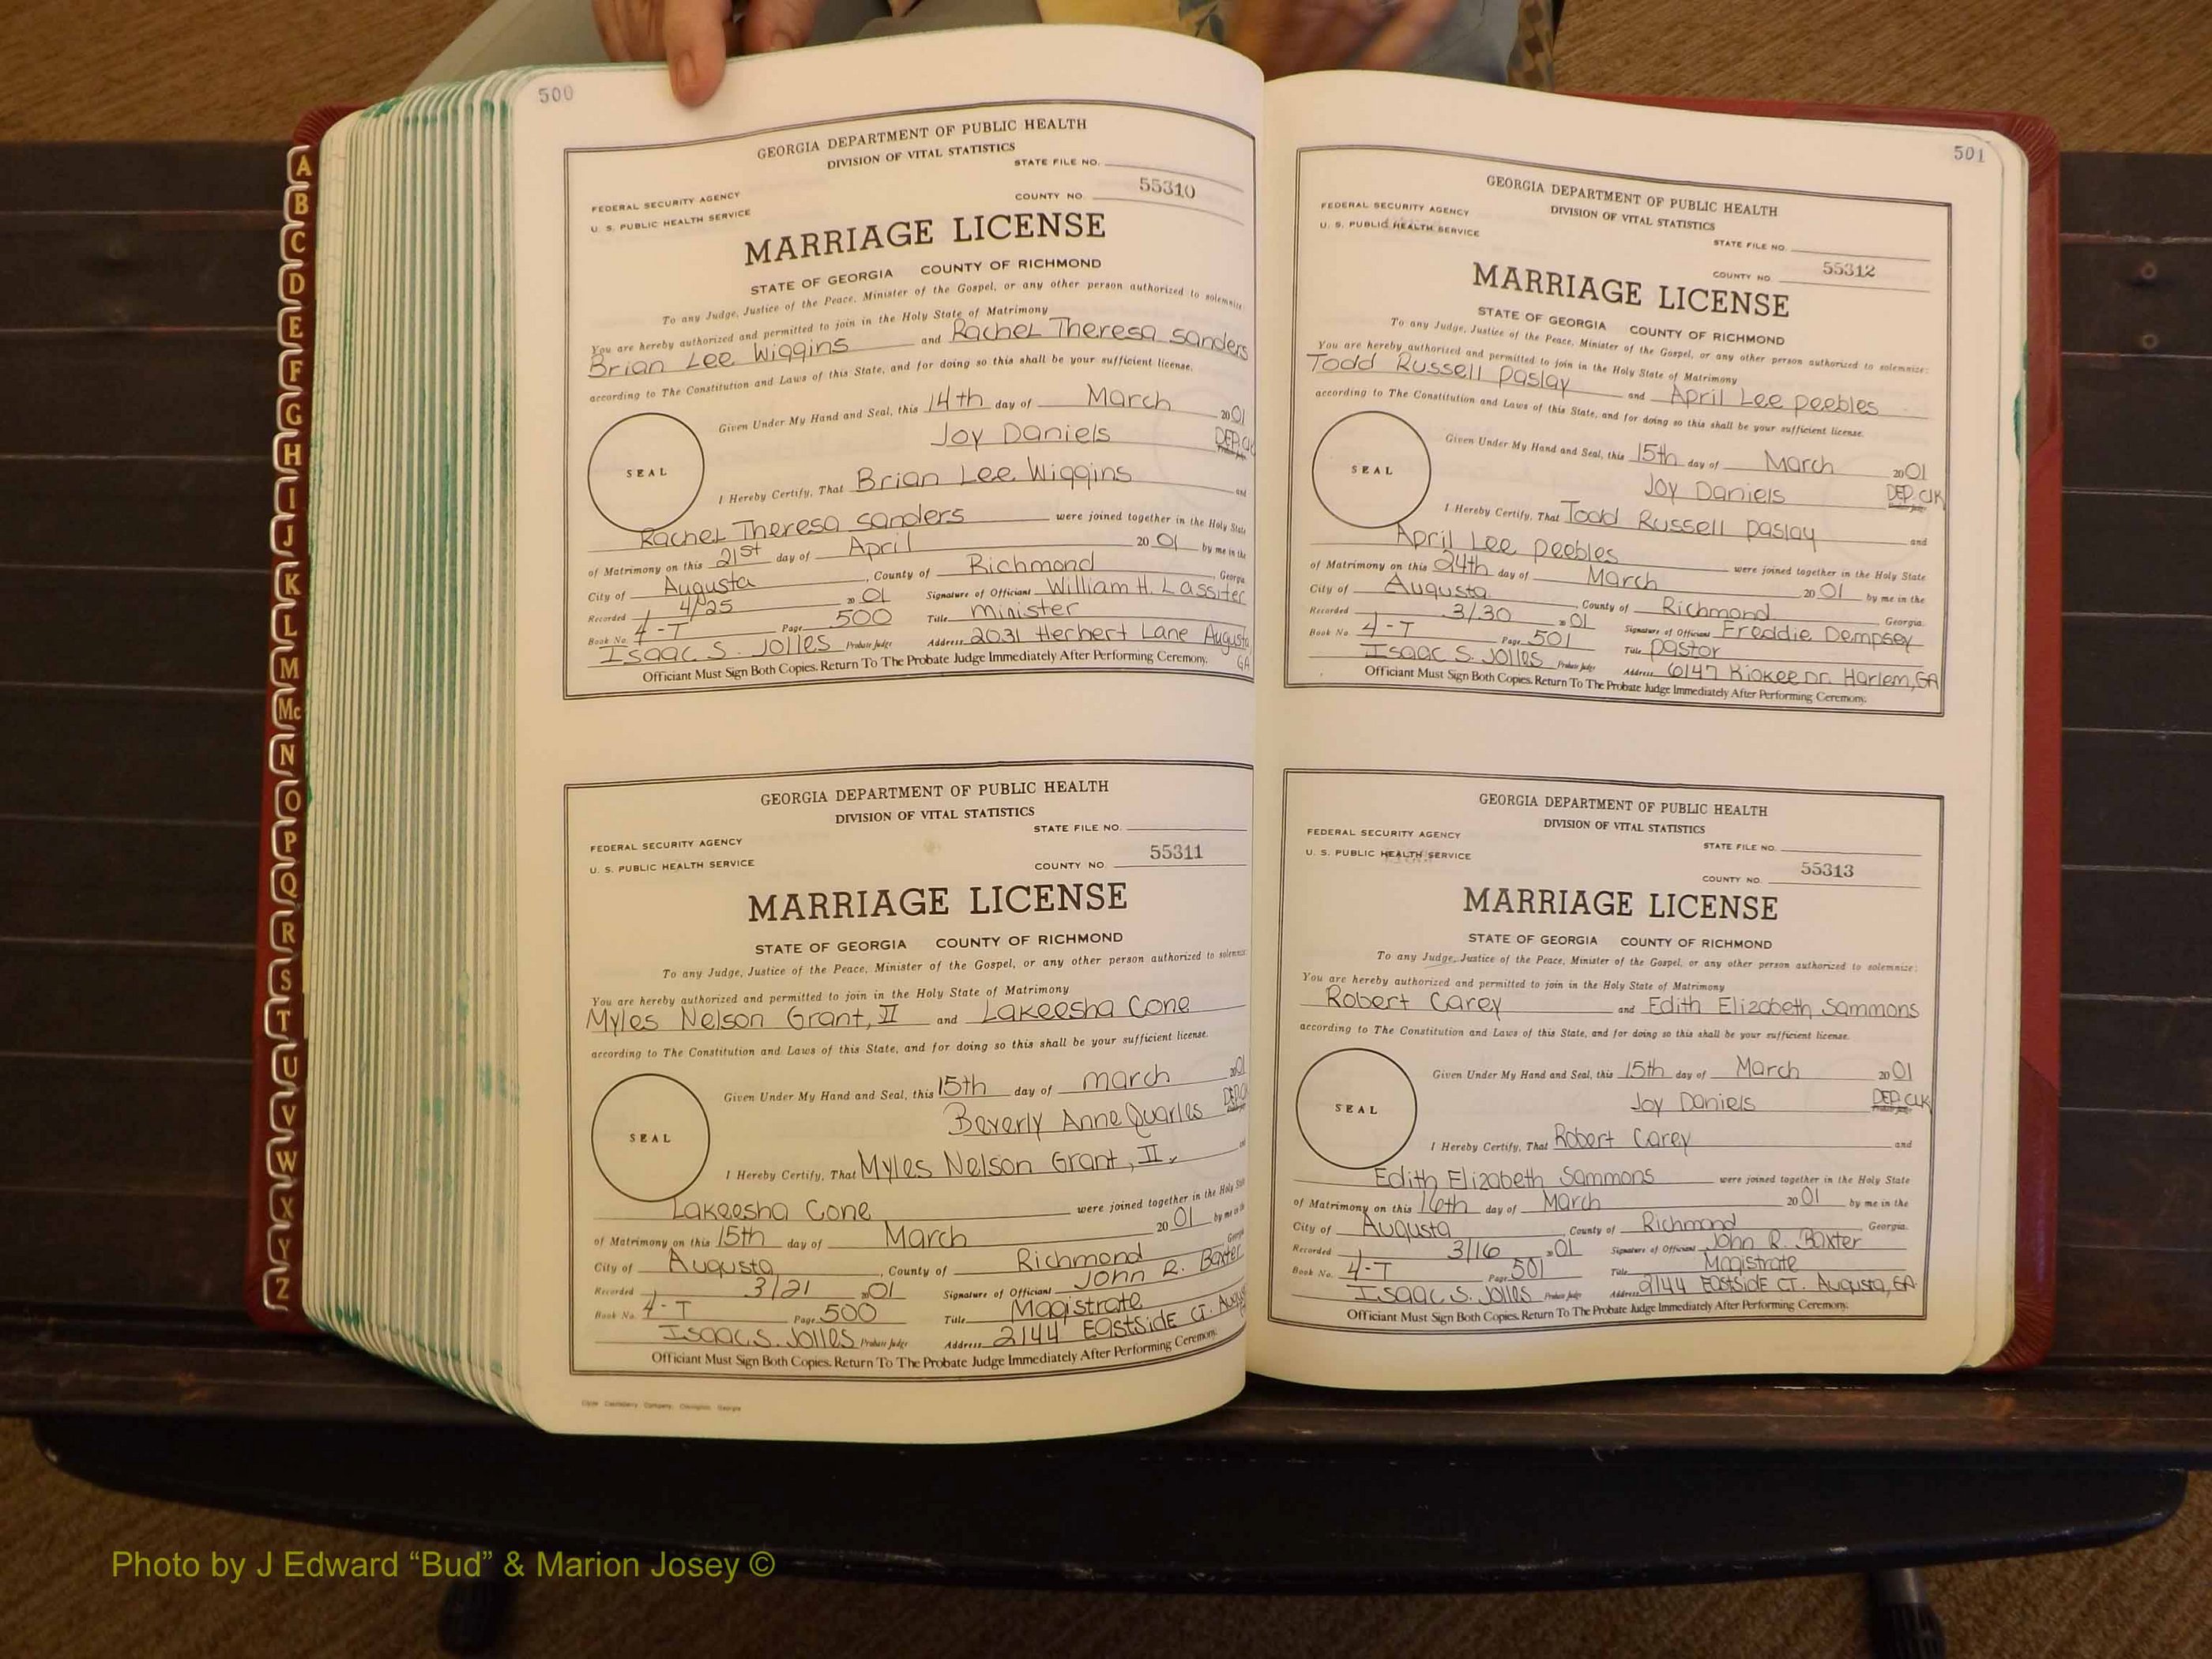 500
GEORGIA DEPARTMENT OF PUBLIC HEALTH
DIVISION OF VITAL STATISTICS
STATE FILE NO.
FEDERAL SECURITY AGENCY
U. S. PUBLIC HEALTH SERVICE
COUNTY NO. 55310
MARRIAGE LICENSE
STATE OF GEORGIA COUNTY OF RICHMOND
To any Judge, Justice of the Peace, Minister of the Gospel, or any other person authorized to solemnize:
You are hereby authorized and permitted to join in the Holy State of Matrimony
Brian Lee Wiggins and Rachel Theresa Sanders
according to The Constitution and Laws of this State, and for doing so this shall be your sufficient license.
Given Under My Hand and Seal, this 14th day of March 2001
Joy Daniels DEP.
SEAL
I Hereby Certify, That Brian Lee Wiggins and
Rachel Theresa Sanders were joined together in the Holy State
of Matrimony on this 21st day of April 2001 by me in the
City of Augusta, County of Richmond, Georgia
Recorded 4/25 2001 Signature of Officiant William H. Lassiter
Book No. 4-T Page 500 Title minister
Isaac S. Jolles Probate Judge Address 2031 Herbert Lane Augusta GA
Officiant Must Sign Both Copies. Return To The Probate Judge Immediately After Performing Ceremony.
GEORGIA DEPARTMENT OF PUBLIC HEALTH
DIVISION OF VITAL STATISTICS
STATE FILE NO.
FEDERAL SECURITY AGENCY
U. S. PUBLIC HEALTH SERVICE
COUNTY NO. 55311
MARRIAGE LICENSE
STATE OF GEORGIA COUNTY OF RICHMOND
To any Judge, Justice of the Peace, Minister of the Gospel, or any other person authorized to solemnize:
You are hereby authorized and permitted to join in the Holy State of Matrimony
Myles Nelson Grant, II and Lakeesha Cone
according to The Constitution and Laws of this State, and for doing so this shall be your sufficient license.
Given Under My Hand and Seal, this 15th day of march 2001
Beverly Anne Quarles DEP.
SEAL
I Hereby Certify, That Myles Nelson Grant, II. and
Lakeesha Cone were joined together in the Holy State
of Matrimony on this 15th day of March 2001 by me in the
City of Augusta, County of Richmond Georgia
Recorded 3/21 2001 Signature of Officiant John R. Baxter
Book No. 4-T Page 500 Title Magistrate
Isaac S. Jolles Probate Judge Address 2144 Eastside CT.
Officiant Must Sign Both Copies. Return To The Probate Judge Immediately After Performing Ceremony.
501
GEORGIA DEPARTMENT OF PUBLIC HEALTH
DIVISION OF VITAL STATISTICS
STATE FILE NO.
FEDERAL SECURITY AGENCY
U. S. PUBLIC HEALTH SERVICE
COUNTY NO 55312
MARRIAGE LICENSE
STATE OF GEORGIA COUNTY OF RICHMOND
To any Judge, Justice of the Peace, Minister of the Gospel, or any other person authorized to solemnize:
You are hereby authorized and permitted to join in the Holy State of Matrimony
Todd Russell Paslay and April Lee peebles
according to The Constitution and Laws of this State, and for doing so this shall be your sufficient license.
Given Under My Hand and Seal, this 15th day of March 2001
Joy Daniels DEP. Clk
SEAL
I Hereby Certify, That Todd Russell Paslay and
April Lee peebles were joined together in the Holy State
of Matrimony on this 24th day of March 2001 by me in the
City of Augusta, County of Richmond Georgia.
Recorded 3/30 2001 Signature of Officiant Freddie Dempsey
Book No. 4-T Page 501 Title pastor
Isaac S. Jolles Probate Judge Address 6147 Kiokee Dr. Harlem, GA
Officiant Must Sign Both Copies. Return To The Probate Judge Immediately After Performing Ceremony.
GEORGIA DEPARTMENT OF PUBLIC HEALTH
DIVISION OF VITAL STATISTICS
STATE FILE NO.
FEDERAL SECURITY AGENCY
U. S. PUBLIC HEALTH SERVICE
COUNTY NO. 55313
MARRIAGE LICENSE
STATE OF GEORGIA COUNTY OF RICHMOND
To any Judge, Justice of the Peace, Minister of the Gospel, or any other person authorized to solemnize:
You are hereby authorized and permitted to join in the Holy State of Matrimony
Robert Carey and Edith Elizabeth Sammons
according to The Constitution and Laws of this State, and for doing so this shall be your sufficient license.
Given Under My Hand and Seal, this 15th day of March 2001
Joy Daniels DEP. CLK
SEAL
I Hereby Certify, That Robert Carey and
Edith Elizabeth Sammons were joined together in the Holy State
of Matrimony on this 16th day of March 2001 by me in the
City of Augusta, County of Richmond, Georgia.
Recorded 3/16 2001 Signature of Officiant John R. Baxter
Book No. 4-T Page 501 Title Magistrate
Isaac S. Jolles Probate Judge Address 2144 Eastside CT. Augusta, GA
Officiant Must Sign Both Copies. Return To The Probate Judge Immediately After Performing Ceremony.
A
B
C
D
E
F
G
H
I
J
K
L
M
Mc
N
O
P
Q
R
S
T
U
V
W
X
Y
Z
Photo by J Edward “Bud” & Marion Josey ©